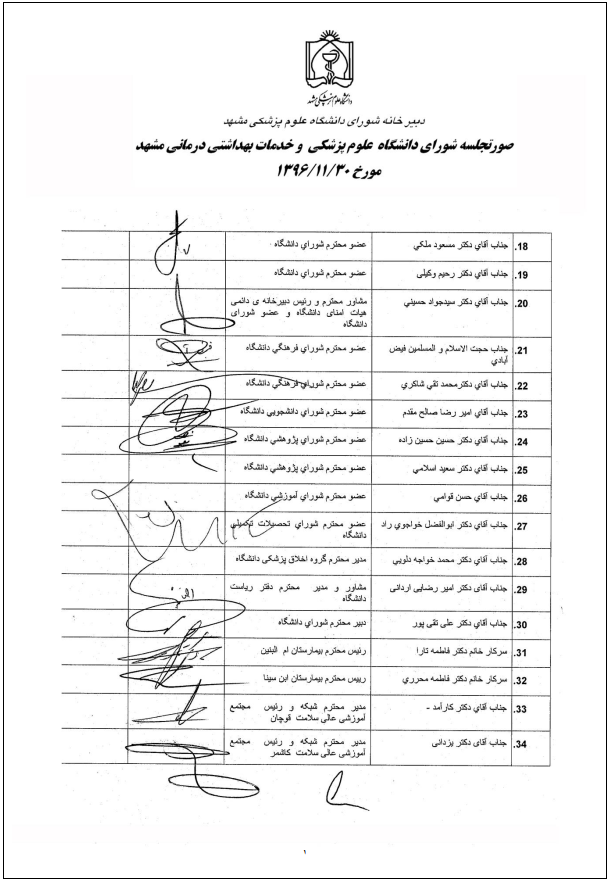 دانشگاه علوم پزشکی مشهد
دبیر خانه شورای دانشگاه علوم پزشکی مشهد
صورتجلسه شورای دانشگاه علوم پزشکی و خدمات بهداشتی درمانی مشهد
مورخ ۱۳۹۶/۱۱/۳۰
18. جناب آقاي دکتر مسعود ملکي عضو محترم شوراي دانشگاه
19. جناب آقاي دکتر رحیم وکیلی عضو محترم شوراي دانشگاه
20. جناب آقاي دکتر سیدجواد حسیني مشاور محترم و رئیس دبیرخانه ی دائمی
هیات امنای دانشگاه و عضو شورای
دانشگاه
21. جناب حجت الاسلام و المسلمین فیض عضو محترم شوراي فرهنگي دانشگاه
آبادي
22. جناب آقاي دکترمحمد تقي شاکري عضو محترم شوراي فرهنگي دانشگاه
23. جناب آقاي امیر رضا صالح مقدم عضو محترم شوراي دانشجویي دانشگاه
24. جناب آقاي دکتر حسین حسین زاده عضو محترم شوراي پژوهشي دانشگاه
25. جناب آقاي دکتر سعید اسلامي عضو محترم شوراي پژوهشي دانشگاه
26. جناب آقاي حسن قوامي عضو محترم شوراي آموزشي دانشگاه
27. جناب آقاي دکتر ابوالفضل خواجوي راد عضو محترم شوراي تحصیلات تکمیلي
دانشگاه
28. جناب آقاي دکتر محمد خواجه دلویي مدیر محترم گروه اخلاق پزشکی دانشگاه
29. جناب آقای دکتر امیر رضایی اردانی مشاور و مدیر محترم دفتر ریاست
دانشگاه
30. جناب آقاي دکتر علی تقی پور دبیر محترم شوراي دانشگاه
31. سرکار خانم دکتر فاطمه تارا رئیس محترم بیمارستان ام البنین
32. سرکار خانم دکتر فاطمه محرري رییس محترم بیمارستان ابن سینا
33. جناب آقاي دکتر کارآمد - مدیر محترم شبکه و رئیس مجتمع
آموزشی عالی سلامت قوچان
34. جناب آقای دکتر یزدانی مدیر محترم شبکه و رئیس مجتمع
آموزشی عالی سلامت کاشمر
۱